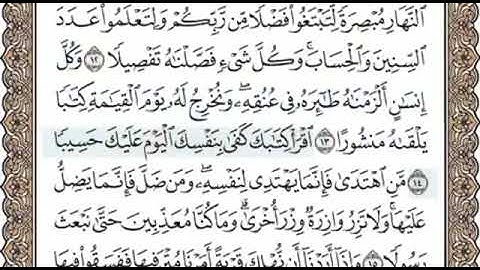 ٱلنَّهَارِ مُبْصِرَةً لِّتَبْتَغُوا۟ فَضْلًا مِّن رَّبِّكُمْ وَلِتَعْلَمُوا۟ عَدَدَ
ٱلسِّنِينَ وَٱلْحِسَابَ ۚ وَكُلَّ شَىْءٍ فَصَّلْنَٰهُ تَفْصِيلًا ١٢ وَكُلَّ
إِنسَٰنٍ أَلْزَمْنَٰهُ طَٰٓئِرَهُۥ فِى عُنُقِهِۦ ۖ وَنُخْرِجُ لَهُۥ يَوْمَ ٱلْقِيَٰمَةِ كِتَٰبًا
يَلْقَىٰهُ مَنشُورًا ١٣ ٱقْرَأْ كِتَٰبَكَ كَفَىٰ بِنَفْسِكَ ٱلْيَوْمَ عَلَيْكَ حَسِيبًا
١٤ مَّنِ ٱهْتَدَىٰ فَإِنَّمَا يَهْتَدِى لِنَفْسِهِۦ ۖ وَمَن ضَلَّ فَإِنَّمَا يَضِلُّ
عَلَيْهَا ۚ وَلَا تَزِرُ وَازِرَةٌ وِزْرَ أُخْرَىٰ ۗ وَمَا كُنَّا مُعَذِّبِينَ حَتَّىٰ نَبْعَثَ
رَسُولًا ١٥ وَإِذَآ أَرَدْنَآ أَن نُّهْلِكَ قَرْيَةً أَمَرْنَا مُتْرَفِيهَا فَفَسَقُوا۟ فِيهَا